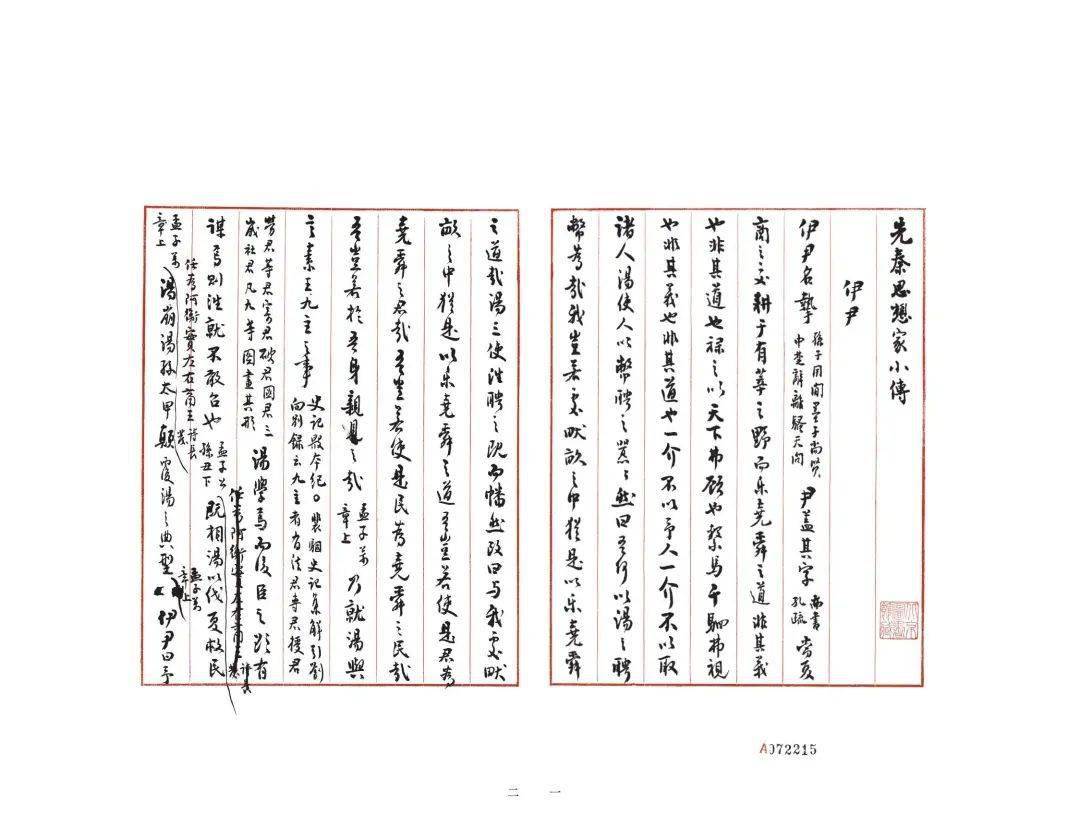 先秦思想家小傳
伊尹
伊尹名摯 孫子用間墨子尚賢
中楚辭離騷天問 尹蓋其字 尚書
孔疏 當夏
商之交耕于有莘之野而乐堯舜之道非其義
也非其道也禄之以天下弗顧也繫馬千駟弗視
也非其義也非其道也一介不以予人一介不以取
諸人湯使人以幣聘之嚣嚣然曰吾何以湯之聘
幣為哉我豈若處畎畝之中猶是以乐堯舜
之道哉湯三使往聘之既而幡然改曰与我處畎
畝之中猶是以乐堯舜之道吾豈若使是君為
堯舜之君哉吾豈若使是民為堯舜之民哉
吾豈若於吾身親見之哉 孟子萬
章上 乃就湯與
言素王九主之事 史記殷本紀。裴駰史記集解引劉
向别錄云九主者有法君專君授君
勞君等君寄君破君國君三
歲社君凡九等圖畫其形 湯學焉而後臣之欲有
謀焉则往就不敢召也 孟子公
孫丑下 既相湯以伐夏救民
任為阿衡實左右商王 詩長
發
孟子萬
章上 湯崩湯孫太甲顛覆湯之典型 孟子萬
章上 伊尹曰予
A072215
二 一